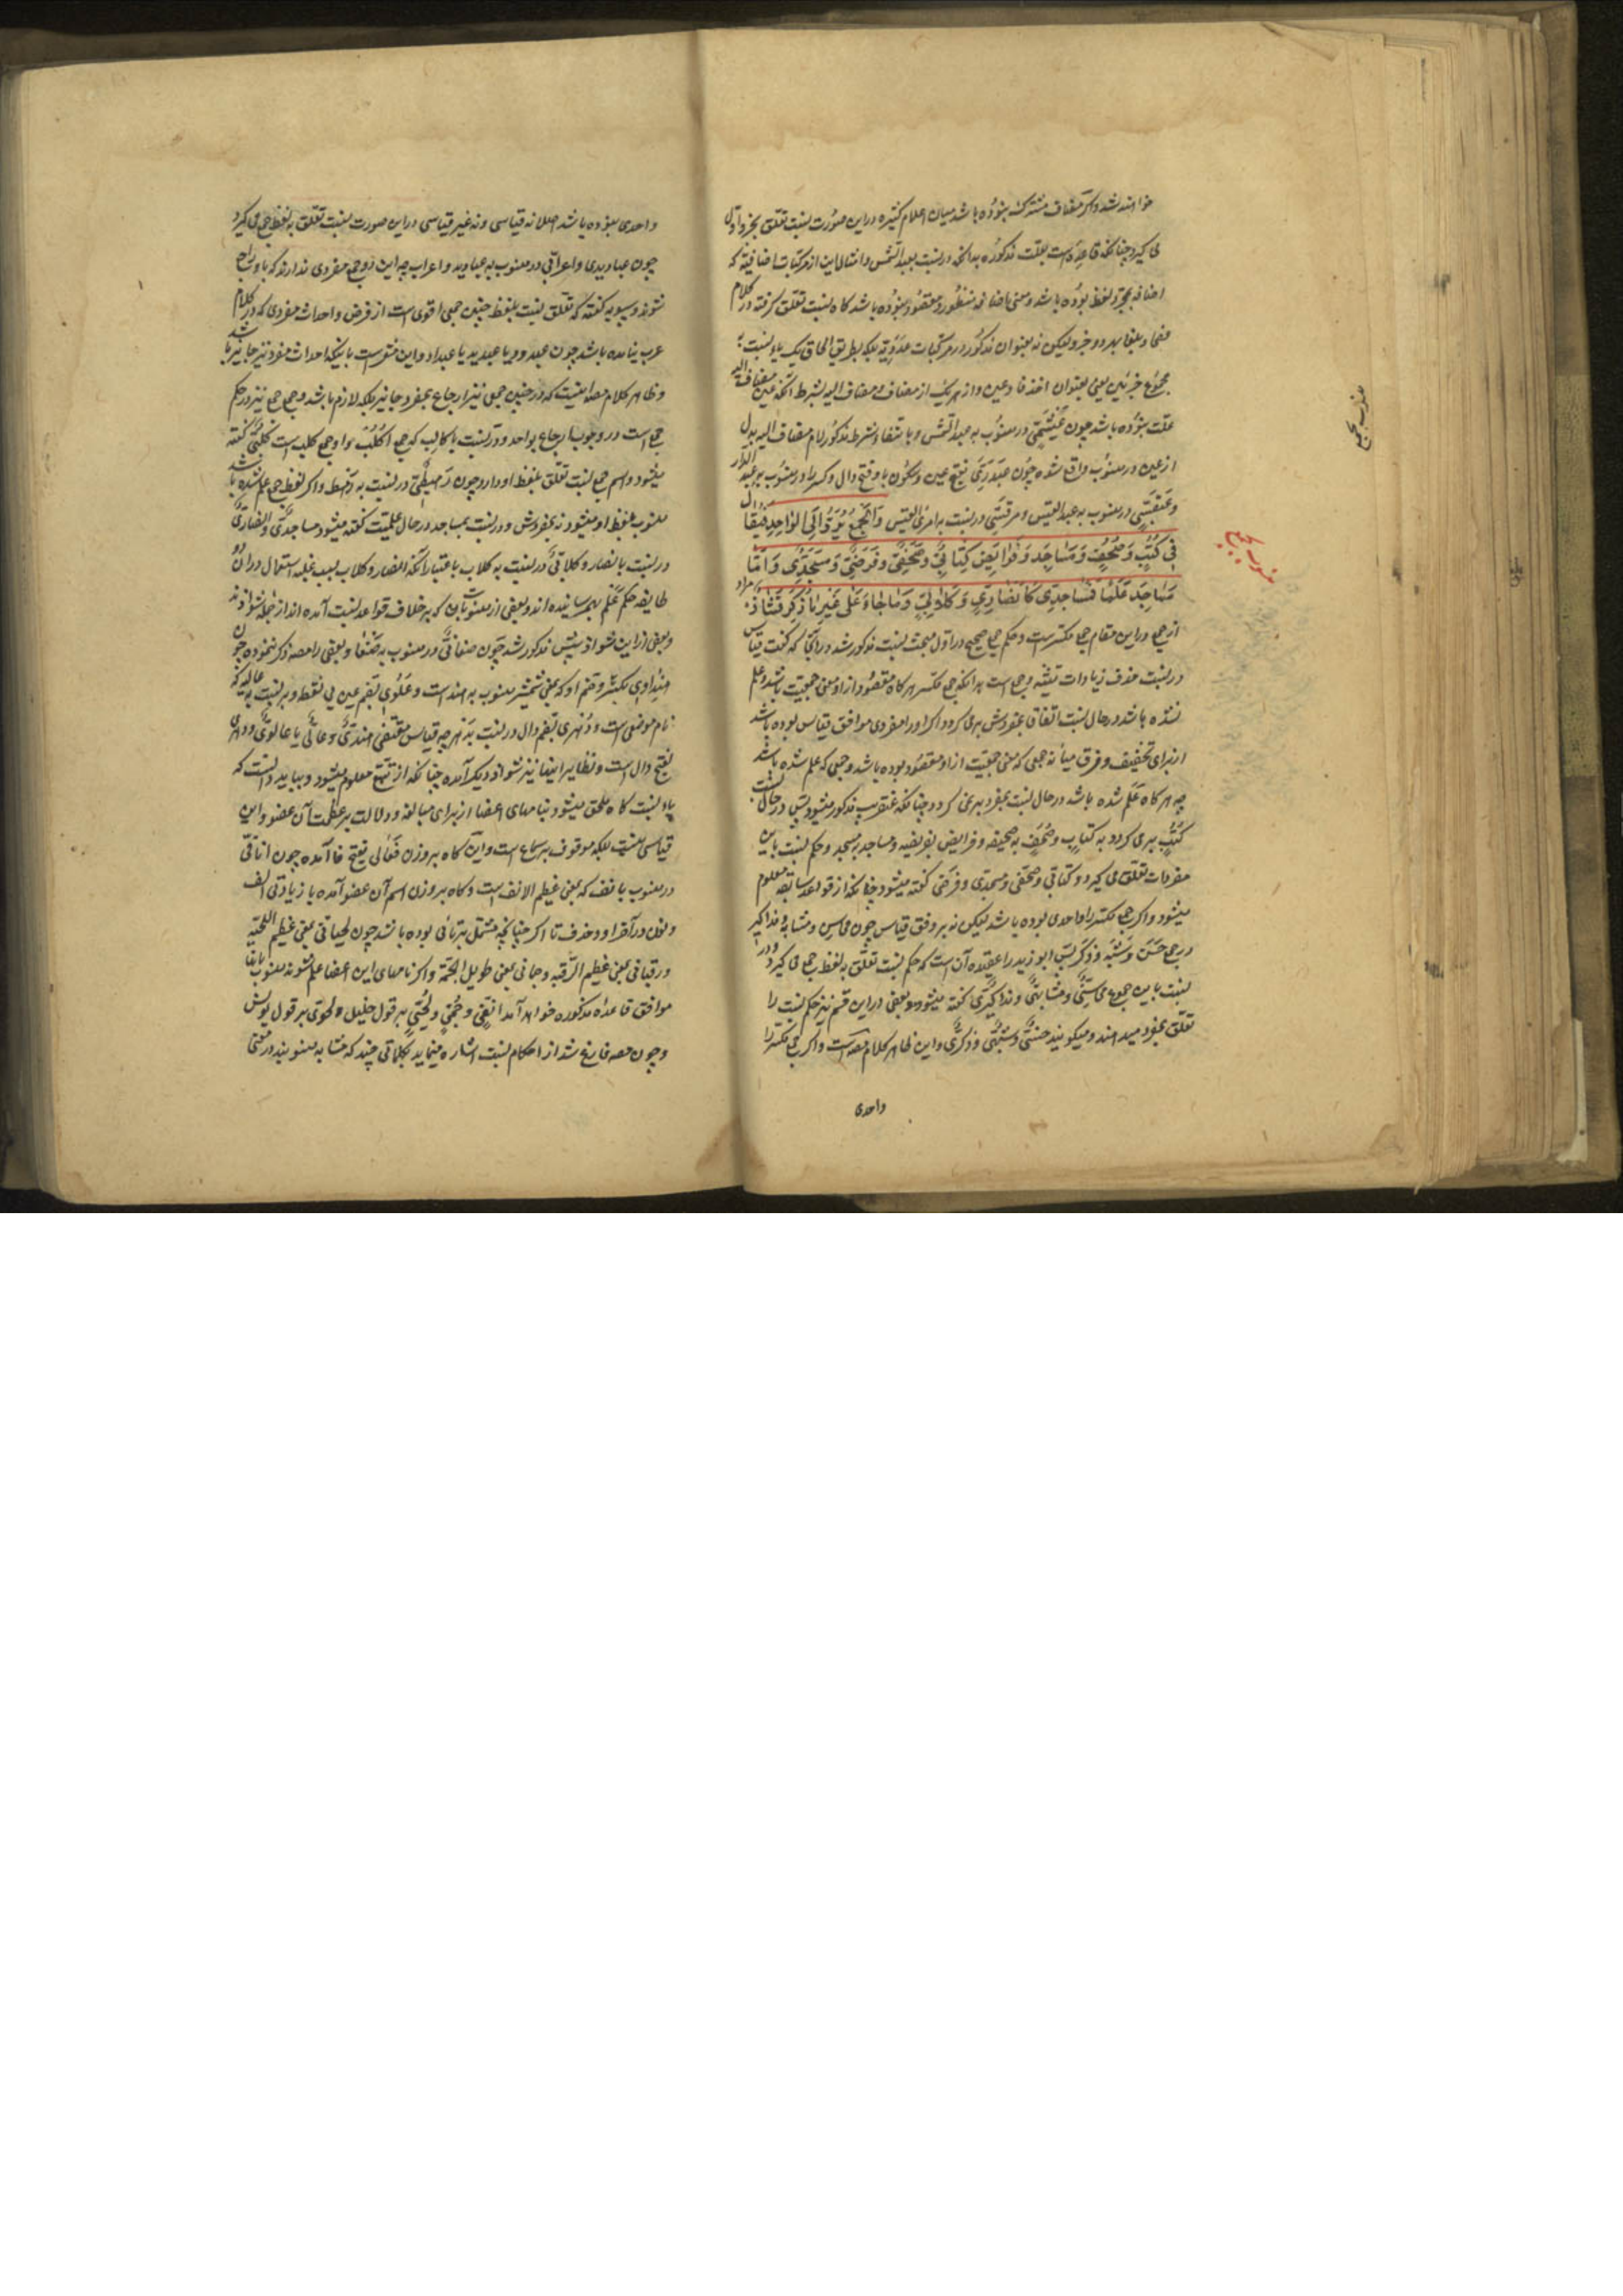 خواهند شد و اگر مضاف مشترک بوده باشد میان اعلام کثیره در این صورت نسبت تعلق بجزو اول
می گیرد چنانکه قاعده است بعلت مذکوره بدانکه در نسبت بعبد الشمس و امثال این از مرکبات اضافیه که
اضافه بمجرد لفظ بوده باشد و معنی اضافی منظور و مقصود نبوده باشد گاه نسبت تعلق گرفته در کلام
فصحا و بلغا بهر دو جزو لیکن نه بعنوان مذکور در مرکبات عددیه بلکه بطریق الحاق یک یاء نسبت به
مجموع جزئین یعنی بعنوان اخذ فا و عین و از هر یک از مضاف و مضاف الیه بشرط آنکه عین مضاف الیه
علت نبوده باشد چون عبشمی در منسوب به عبد الشمس و با انتفاء شرط مذکور لام مضاف الیه بدل
از عین در منسوب واقع شده چون عبدری بفتح عین و سکون با و فتح دال و کسر را در منسوب به عبد الدار
و عبقسی در منسوب به عبد القیس و مرقسی در نسبت به امرئ القیس وَالجَمعُ یُرَدُّ اِلَی الوَاحِدِ فَیُقَالُ
فِی کُتُبٍ وَ صُحُفٍ وَ مَسَاجِدَ وَ فَرَائِضَ کِتَابِیٌّ وَ صَحَفِیٌّ وَ فَرَضِیٌّ وَ مَسجِدِیٌّ وَ اَمَّا
مَسَاجِدُ عَلَمًا فَمَسَاجِدِیٌّ کَاَنصَارِیٍّ وَ کِلَابِیٍّ وَ مَا جَاءَ عَلَی غَیرِ مَا ذُکِرَ فَشَاذٌّ مراد
از جمع در این مقام جمع مکسر است و حکم جمع صحیح در اول مبحث نسبت مذکور شد در آنجا که گفت قیاس
در نسبت حذف زیادات تثنیه و جمع است بدانکه جمع مکسر هر گاه مقصود از او معنی جمعیت باشد و علم
نشده باشد در حال نسبت اتفاق بمفردش بر می گردد اگر او را مفردی موافق قیاس بوده باشد
از برای تخفیف و فرق میانه جمعی که معنی جمعیت از او مقصود بوده باشد و جمعی که علم شده باشد
چه هر گاه علم شده باشد در حال نسبت بمفرد بر نمی گردد چنانکه عنقریب مذکور میشود پس در حال نسبت
کتب بر می گردد به کتاب و صحف به صحیفه و فرایض بفریضه و مساجد به مسجد و حکم نسبت باین
مفردات تعلق می گیرد و کتابی و صحفی و مسجدی و فرضی گفته میشود چنانکه از قواعد سابقه معلوم
میشود و اگر جمع مکسر را واحدی بوده باشد لیکن نه بر وفق قیاس چون محاسن و مشابه و مذاکیر
در جمع حسن و شبه و ذکر پس ابو زید را عقیده آن است که حکم نسبت تعلق به لفظ جمع می گیرد و در
نسبت باین جموع محاسنی و مشابهی و مذاکیری گفته میشود و بعضی در این قسم نیز حکم نسبت را
تعلق بمفرد میدهند و میگویند حسنی و شبهی و ذکری و این ظاهر کلام مصه است و اگر جمع مکسر را
واحدی
منسوب بجمع
منسوب بجمع
واحدی نبوده باشد اصلا نه قیاسی و نه غیر قیاسی در این صورت نسبت تعلق به لفظ جمع می گیرد
چون عبادیدی و اعرابی در منسوب به عبادید و اعراب چه این دو جمع مفردی ندارند که باو راجع
شوند و سیبویه گفته که تعلق نسبت بلفظ چنین جمعی اقوی است از فرض و احداث مفردی که در کلام
عرب نیامده باشد چون عبدود یا عبدید یا عبداد و این مشعر است باینکه احداث مفرد نیز جایز باشد
و ظاهر کلام مصه اینست که در چنین جمعی نیز ارجاع بمفرد جایز بلکه لازم باشد و جمع جمع نیز در حکم
جمع است در وجوب ارجاع بواحد و در نسبت باکالب که جمع اکلب و او جمع کلب است کلبی گفته
میشود و اسم جمع نسبت تعلق بلفظ او دارد چون رهطی در نسبت به رهط و اگر لفظ جمع علم شده باشد
منسوب بلفظ او میشود نه بمفردش و در نسبت بمساجد در حال علمیت گفته میشود مساجدی و انصاری
در نسبت بانصار و کلابی در نسبت به کلاب باعتبار آنکه انصار و کلاب بسبب غلبه استعمال در آن دو
طایفه حکم علم بهم رسانیده اند و بعضی از منسوبات که بر خلاف قواعد نسبت آمده اند از جمله شواذند
و بعضی از این شواذ پیش مذکور شد چون صنعانی در منسوب به صنعا و بعضی را مصه ذکر ننموده چون
هنداوی بکسر و ضم او که بمعنی شمشیر منسوب به هند است و علوی بضم عین بی نقطه در نسبت به عالیه که
نام موضعی است و دهری بضم دال در نسبت بدهر چه قیاس مقتضی هندی و عالی یا عالوی و دهری
بفتح دال است و نظایر اینها نیز شواذ دیگر آمده چنانکه از تتبع معلوم میشود و بباید دانست که
یاء نسبت گاه ملحق میشود بنامهای اعضا از برای مبالغه و دلالت بر عظمت آن عضو و این
قیاسی نیست بلکه موقوف بر سماع است و آن گاه بر وزن فعالی بفتح فا آمده چون انافی
در منسوب بانف که بمعنی عظیم الانف است و گاه بر وزن اسم آن عضو آمده با زیادتی الف
و نون در آخر او و حذف تا اگر چنانچه مشتمل بر تائی بوده باشد چون لحیانی بمعنی عظیم اللحیه
و رقبانی بمعنی عظیم الرقبه و جمانی بمعنی طویل الجمه و اگر نامهای این اعضا علم شوند منسوب بانها
موافق قاعده مذکوره خواهد آمد انفی و جمی و لحیی بر قول خلیل و لحوی بر قول یونس
و چون مصه فارغ شد از احکام نسبت اشاره مینماید بکلماتی چند که مشابه منسوبند در معنی